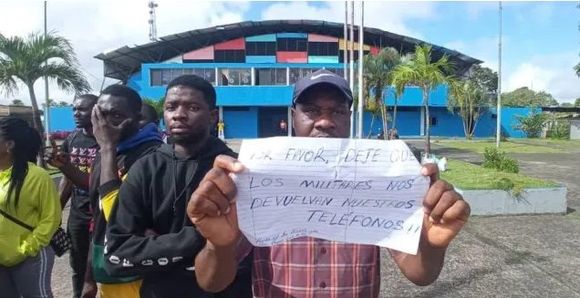 POR FAVOR, DEJE QUE
LOS MILITARES NOS
DEVUELVAN NUESTROS
TELÉFONOS!!